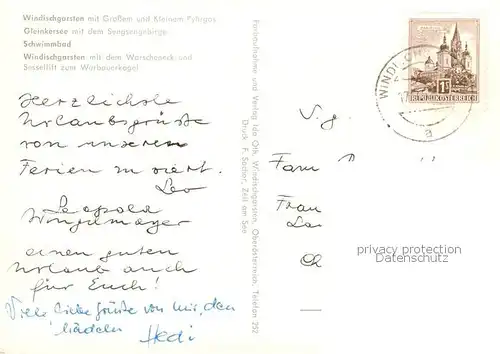 Windischgarsten mit Großem und Kleinem Pyhrgas
Gleinkersee mit dem Sengsengebirge
Schwimmbad
Windischgarsten mit dem Warscheneck und
Sessellift zum Wurbauerkogel
Herzlichste
Urlaubsgrüße
von unseren
Ferien zu viert.
Leo
Leopold
einen guten
Urlaub auch
für Euch!
Viele liebe Grüße von mir, den
Mädeln
Hedi
Farbaufnahme und Verlag Ida Oth, Windischgarsten, Oberösterreich, Telefon 252
Druck F. Sochor, Zell am See
WINDI
a
1S
REPUBLIK ÖSTERREICH
Fam
Frau
privacy protected
Datenschutz